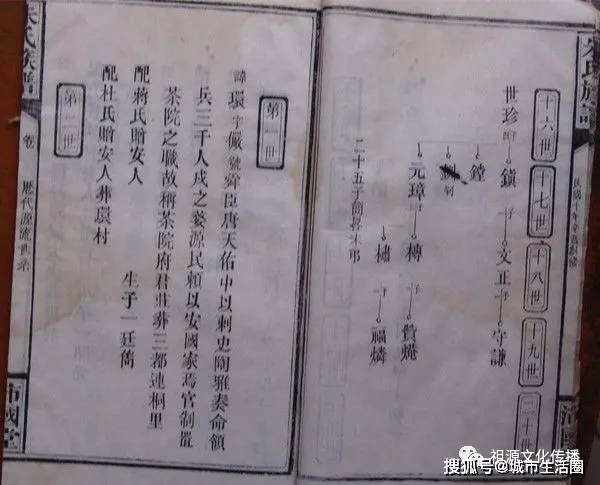 民國十年辛酉
十六世
十七世
十八世
十九世
二十世
世珍 鎮 子 文正 子 守謙
鏜
元璋 子
橚 子
二十五子
第一世
諱環字 號舜臣唐天佑中以刺史陶雅奏命領
兵三千人戍之婺源民賴以安國家焉官制置
茶院之職故稱茶院府君 葬三都連桐里
配蔣氏贈安人
生子一廷雋
配杜氏贈安人葬環村
第二世
氏族譜
卷
歷代源流世系
沛國堂
祖源文化传播
搜狐号@城市生活圈